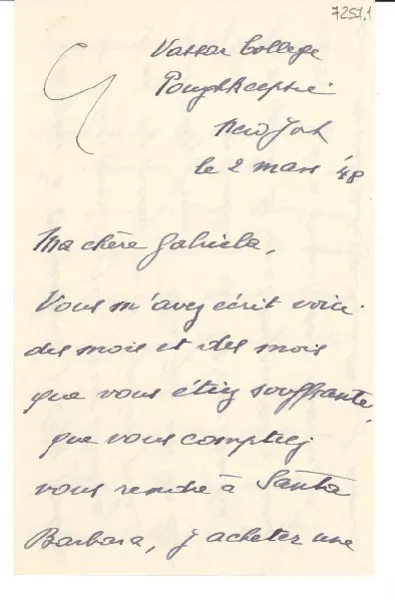 7257,1
Vassar College
Poughkeepsie
New York
le 2 mars '48
Ma chère Gabriela,
Vous m'avez écrit voici
des mois et des mois
que vous étiez souffrante,
que vous comptiez
vous rendre à Santa
Barbara, y acheter une